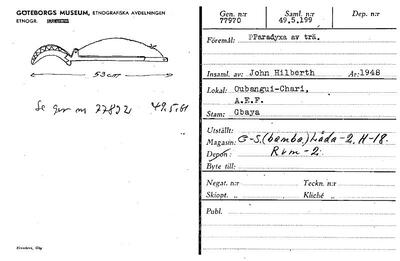 GÖTEBORGS MUSEUM, ETNOGRAFISKA AVDELNINGEN
ETNOGR.
53 cm
Se gen nr 77832 49.5.61
Gen. n:r
77970
Saml. n:r
49.5.199
Dep. n:r
Föremål: PParadyxa av trä.
Insaml. av: John Hilberth År: 1948
Lokal: Oubangui-Chari,
A.E.F.
Stam: Gbaya
Utställt:
Magasin: G-S. (bamba) Låda-2, H-18.
Depon: Rvm-2.
Byte till:
Negat. n:r Teckn. n:r
Skiopt. „ Kliché „
Publ.